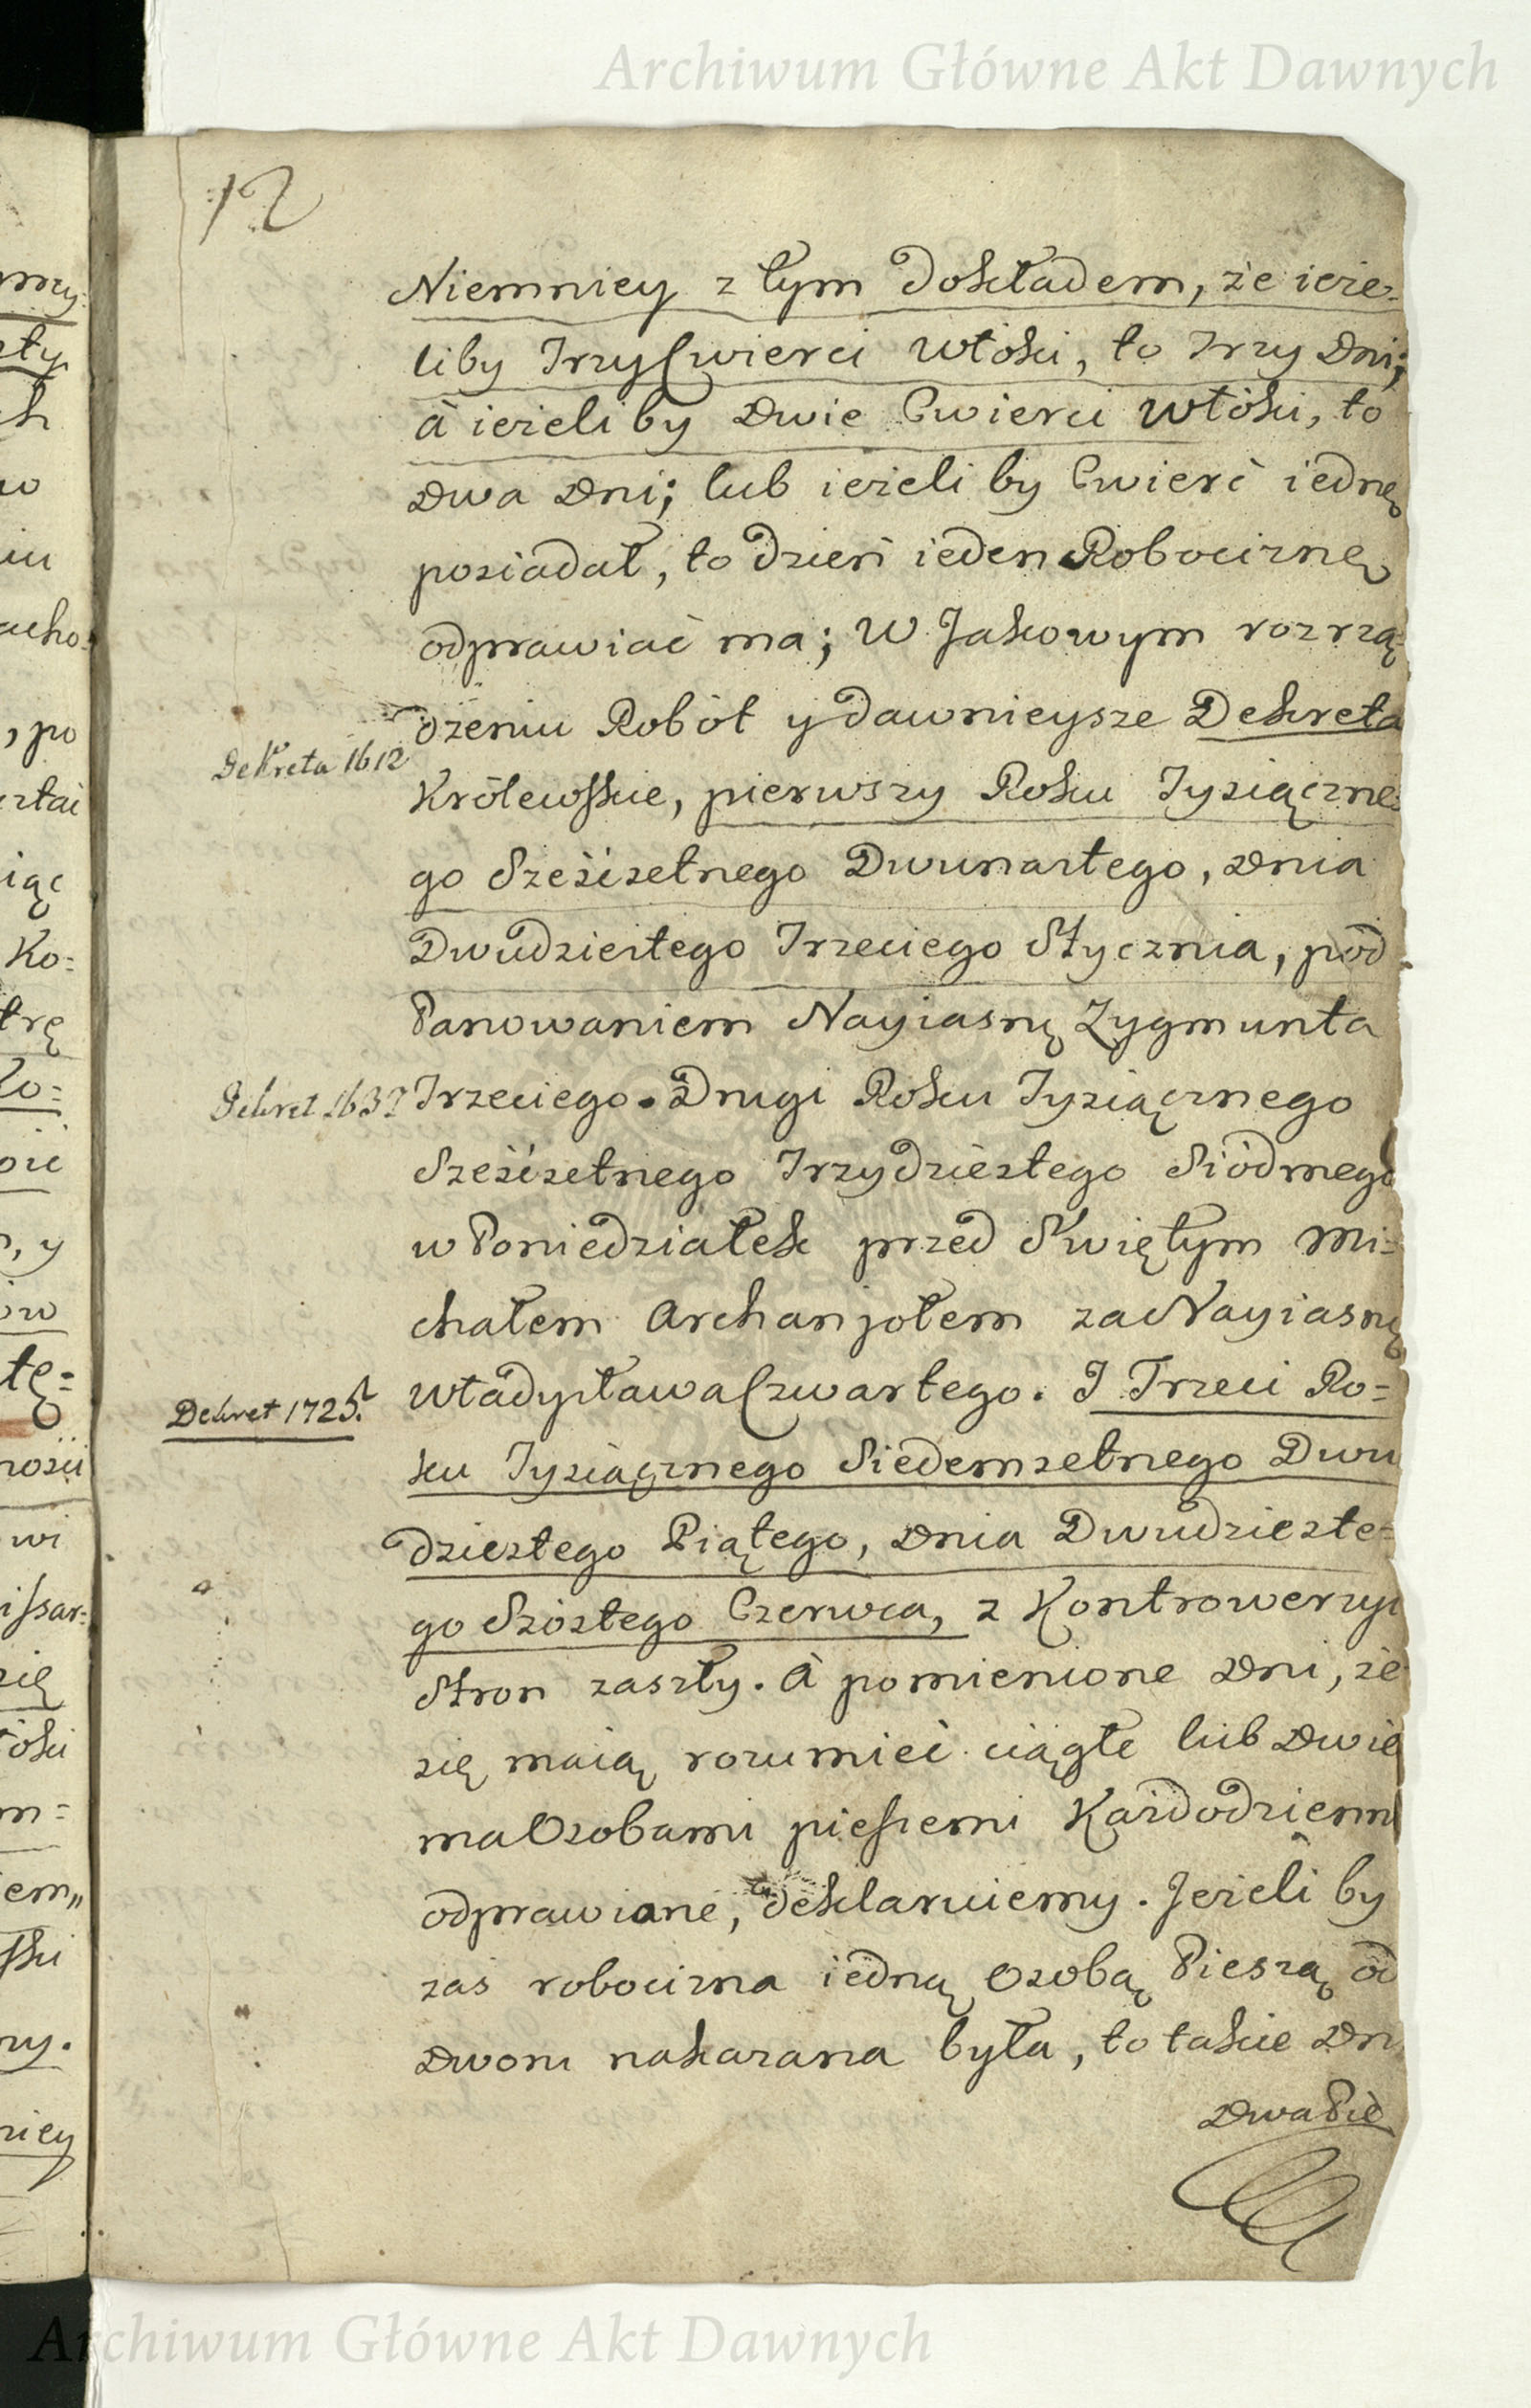 Archiwum Główne Akt Dawnych
12
Niemniey z tym dokładem, że ieże=
liby Trzy Cwierci Włóki, to Trzy Dni;
á ieżeli by Dwie Cwierci Włóki, to
Dwa Dni; lub ieżeli by Cwierć iednę
posiadał, to dzień ieden Robociznę
odprawiać ma; W Jakowym rozrzą=
dzeniu Robót y dawnieysze Dekreta
Dekreta 1612
Królewskie, pierwszy Roku Tysiączne=
go Sześćsetnego Dwunastego, Dnia
Dwudziestego Trzeciego Stycznia, pod
Panowaniem Nayiasnę Zygmunta
Dekret 1637
Trzeciego. Drugi Roku Tysiącznego
Sześćsetnego Trzydziestego Siódmego
w Poniedziałek przed Swiętym Mi=
chałem Archanjołem za Nayiasnę
Dekret 1725.
Władysława Czwartego. I Trzeci Ro=
ku Tysiącznego Siedemsetnego Dwu
dziestego Piątego, Dnia Dwudzieste=
go Szóstego Czerwca, z Kontrowersyi
Stron zaszły. A pomienione Dni, że
się maią rozumieć ciągłe lub Dwie
ma Osobami pieszemi Kazdodzienni
odprawione, tu deklaruiemy. Jeżeli by
zas robocizna iedną Osobą Pieszą od
Dworu nakazana była, to takie Dn
Dwa Pie
Archiwum Główne Akt Dawnych